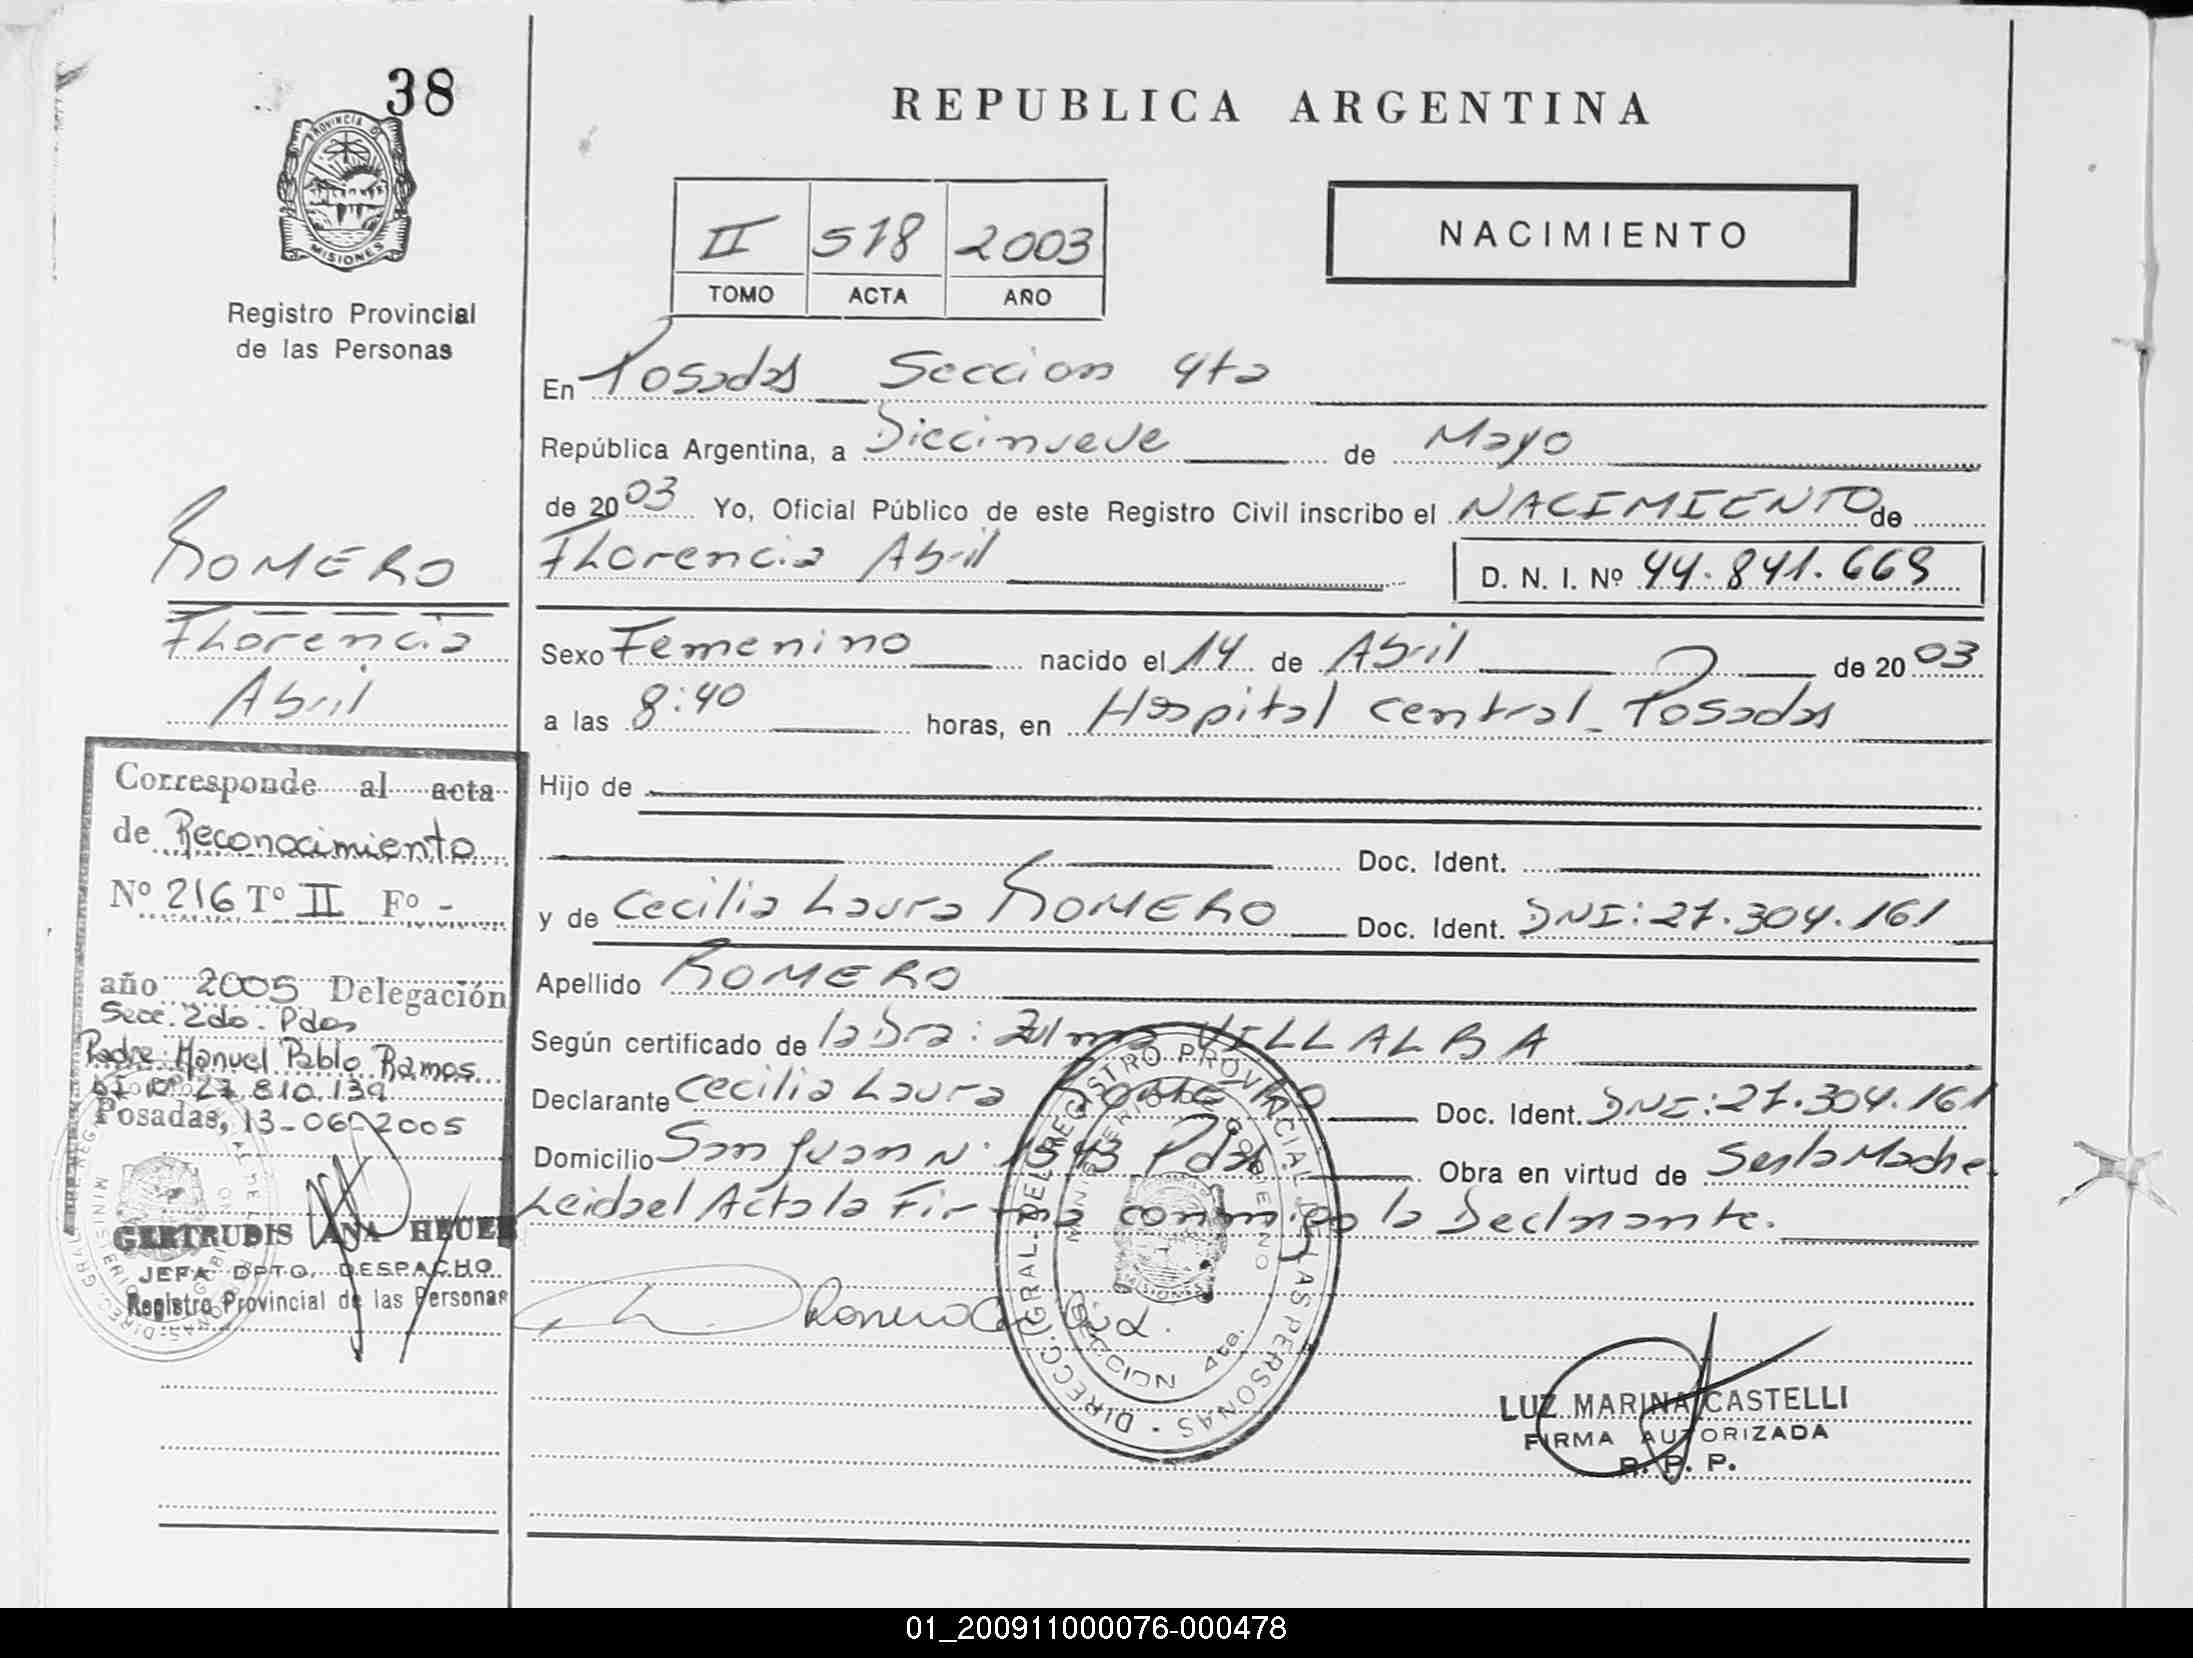 38
PROVINCIA DE
MISIONES
Registro Provincial
de las Personas
ROMERO
Florencia
Abril
Corresponde al acta
de Reconocimiento
Nº 216 Tº II Fº -
año 2005 Delegación
Secc. 2da. Pdas
Padre: Manuel Pablo Ramos
DI Nº 27.810.139
Posadas, 13-06-2005
GERTRUDIS ANA HEUER
JEFA DPTO. DESPACHO
Registro Provincial de las Personas
REPUBLICA ARGENTINA
II 518 2003
TOMO ACTA AÑO
NACIMIENTO
En Posadas Seccion 4ta
República Argentina, a Diecinueve de Mayo
de 2003 Yo, Oficial Público de este Registro Civil inscribo el NACIMIENTO de
Florencia Abril D. N. I. Nº 44.841.669
Sexo Femenino nacido el 14 de Abril de 2003
a las 8:40 horas, en Hospital Central - Posadas
Hijo de
Doc. Ident.
y de Cecilia Laura ROMERO Doc. Ident. DNI: 27.304.161
Apellido ROMERO
Según certificado de la Dra: Zulma VILLALBA
Declarante Cecilia Laura ROMERO Doc. Ident. DNI: 27.304.161
Domicilio San Juan Nº 1543 Pdas Obra en virtud de Ser la Madre.
Leida el Acta la Firma conmigo la Declarante.
DIRECC. GRAL. DEL REGISTRO PROVINCIAL DE LAS PERSONAS
MINISTERIO DE GOBIERNO
SECCION 4ta.
Romero Cecilia L.
LUZ MARINA CASTELLI
FIRMA AUTORIZADA
R. P. P.
01_200911000076-000478